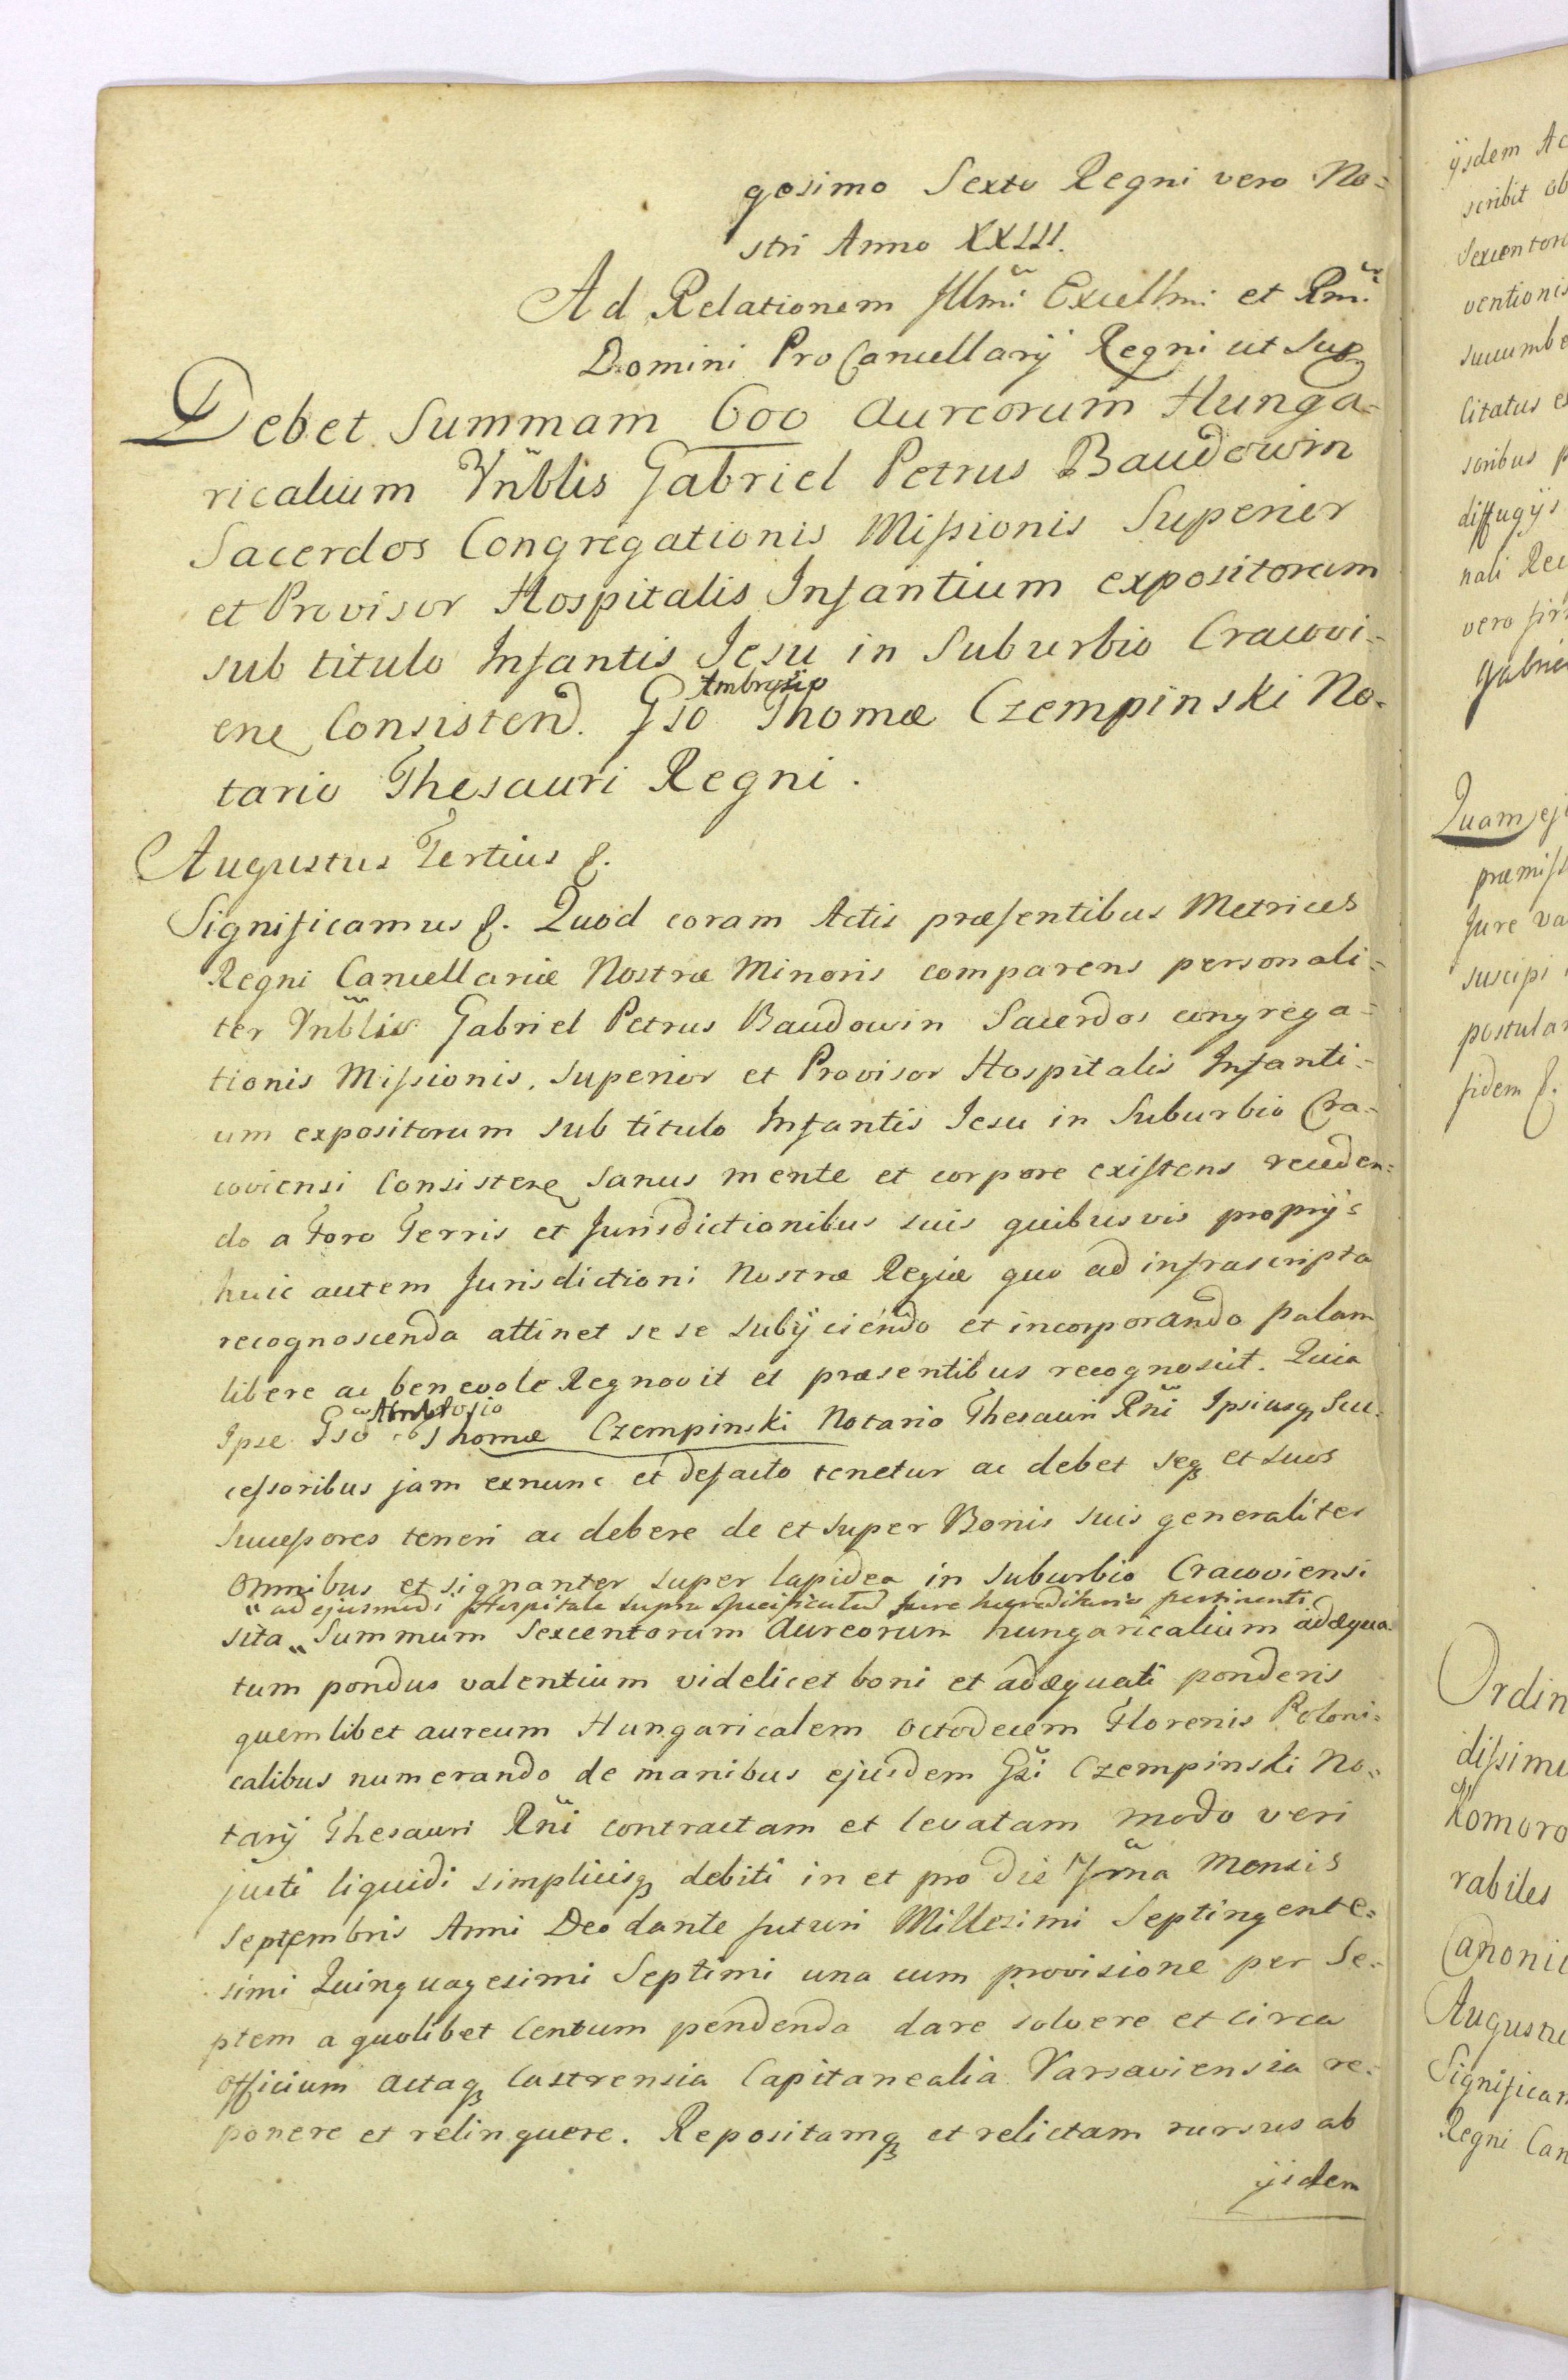 gesimo Sexto Regni vero No=
stri Anno XXIII.
Ad Relationem Illmi Excellmi et Rmi
Domini ProCancellarij Regni ut Sup
Debet Summam 600 Aureorum Hunga=
ricalium Vnblis Gabriel Petrus Baudowin
Sacerdos Congregationis Missionis Superior
et Provisor Hospitalis Infantium expositorum
sub titulo Infantis Jesu in Suburbio Cracovi=
ene Consistend. Gso Ambrosio Thomæ Czempinski No=
tario Thesauri Regni.
Augustus Tertius &.
Significamus &. Quod coram Actis præsentibus Metrices
Regni Cancellariæ Nostræ Minoris comparens personali=
ter Vnblis Gabriel Petrus Baudowin Sacerdos congrega=
tionis Missionis. Superior et Provisor Hospitalis Infanti=
um expositorum sub titulo Infantis Jesu in Suburbio Cra=
coviensi Consisten sanus mente et corpore existens receden=
do a Foro Terris et Jurisdictionibus suis quibusvis proprijs
huic autem Jurisdictioni Nostræ Regiæ quo ad infrascripta
recognoscenda attinet se se subijciendo et incorporando palam
libere ac benevole Regnovit et præsentibus recognoscit. Quia
Ipse Gso Ambrosio Thomæ Czempinski Notario Thesauri Rni Ipsiusq Suc=
cessoribus jam exnunc et defacto tenetur ac debet seq et suos
Successores teneri ac debere de et super Bonis suis generaliter
omnibus et signanter super lapidea in suburbio Cracoviensi
" ad ejusmodi Hospitale supra specificatum Jure hæreditario pertinenti
sita " Summam Sexcentorum Aureorum hungaricalium adæqua=
tum pondus valentium videlicet boni et adæquati ponderis
quemlibet aureum Hungaricalem octodecem Florenis Poloni=
calibus numerando de manibus ejusdem Gsi Czempinski No=
tarij Thesauri Rni contractam et levatam modo veri
justi liquidi simplicisq debiti in et pro die 1ma Mensis
Septembris Anni Deo dante futuri Millesimi Septingente=
simi Quinquagesimi Septimi una cum provisione per Se=
ptem a quolibet Centum pendenda dare solvere et circa
officium Actaq Castrensia Capitanealia Varsaviensia re=
ponere et relinquere. Repositamq et relictam rursus ab
ijsdem
ijsdem Ac
scribit ob
Sexcentor
ventionis
succumbe
litatus e
soribus p
diffugijs
nali Rec
vero fir
Gabrie
Quam ej
præmiss
Jure va
suscipi
postula
fidem &.
Ordin
dissimi
Komoro
rabiles
Canonic
Augustu
Significam
Regni Can